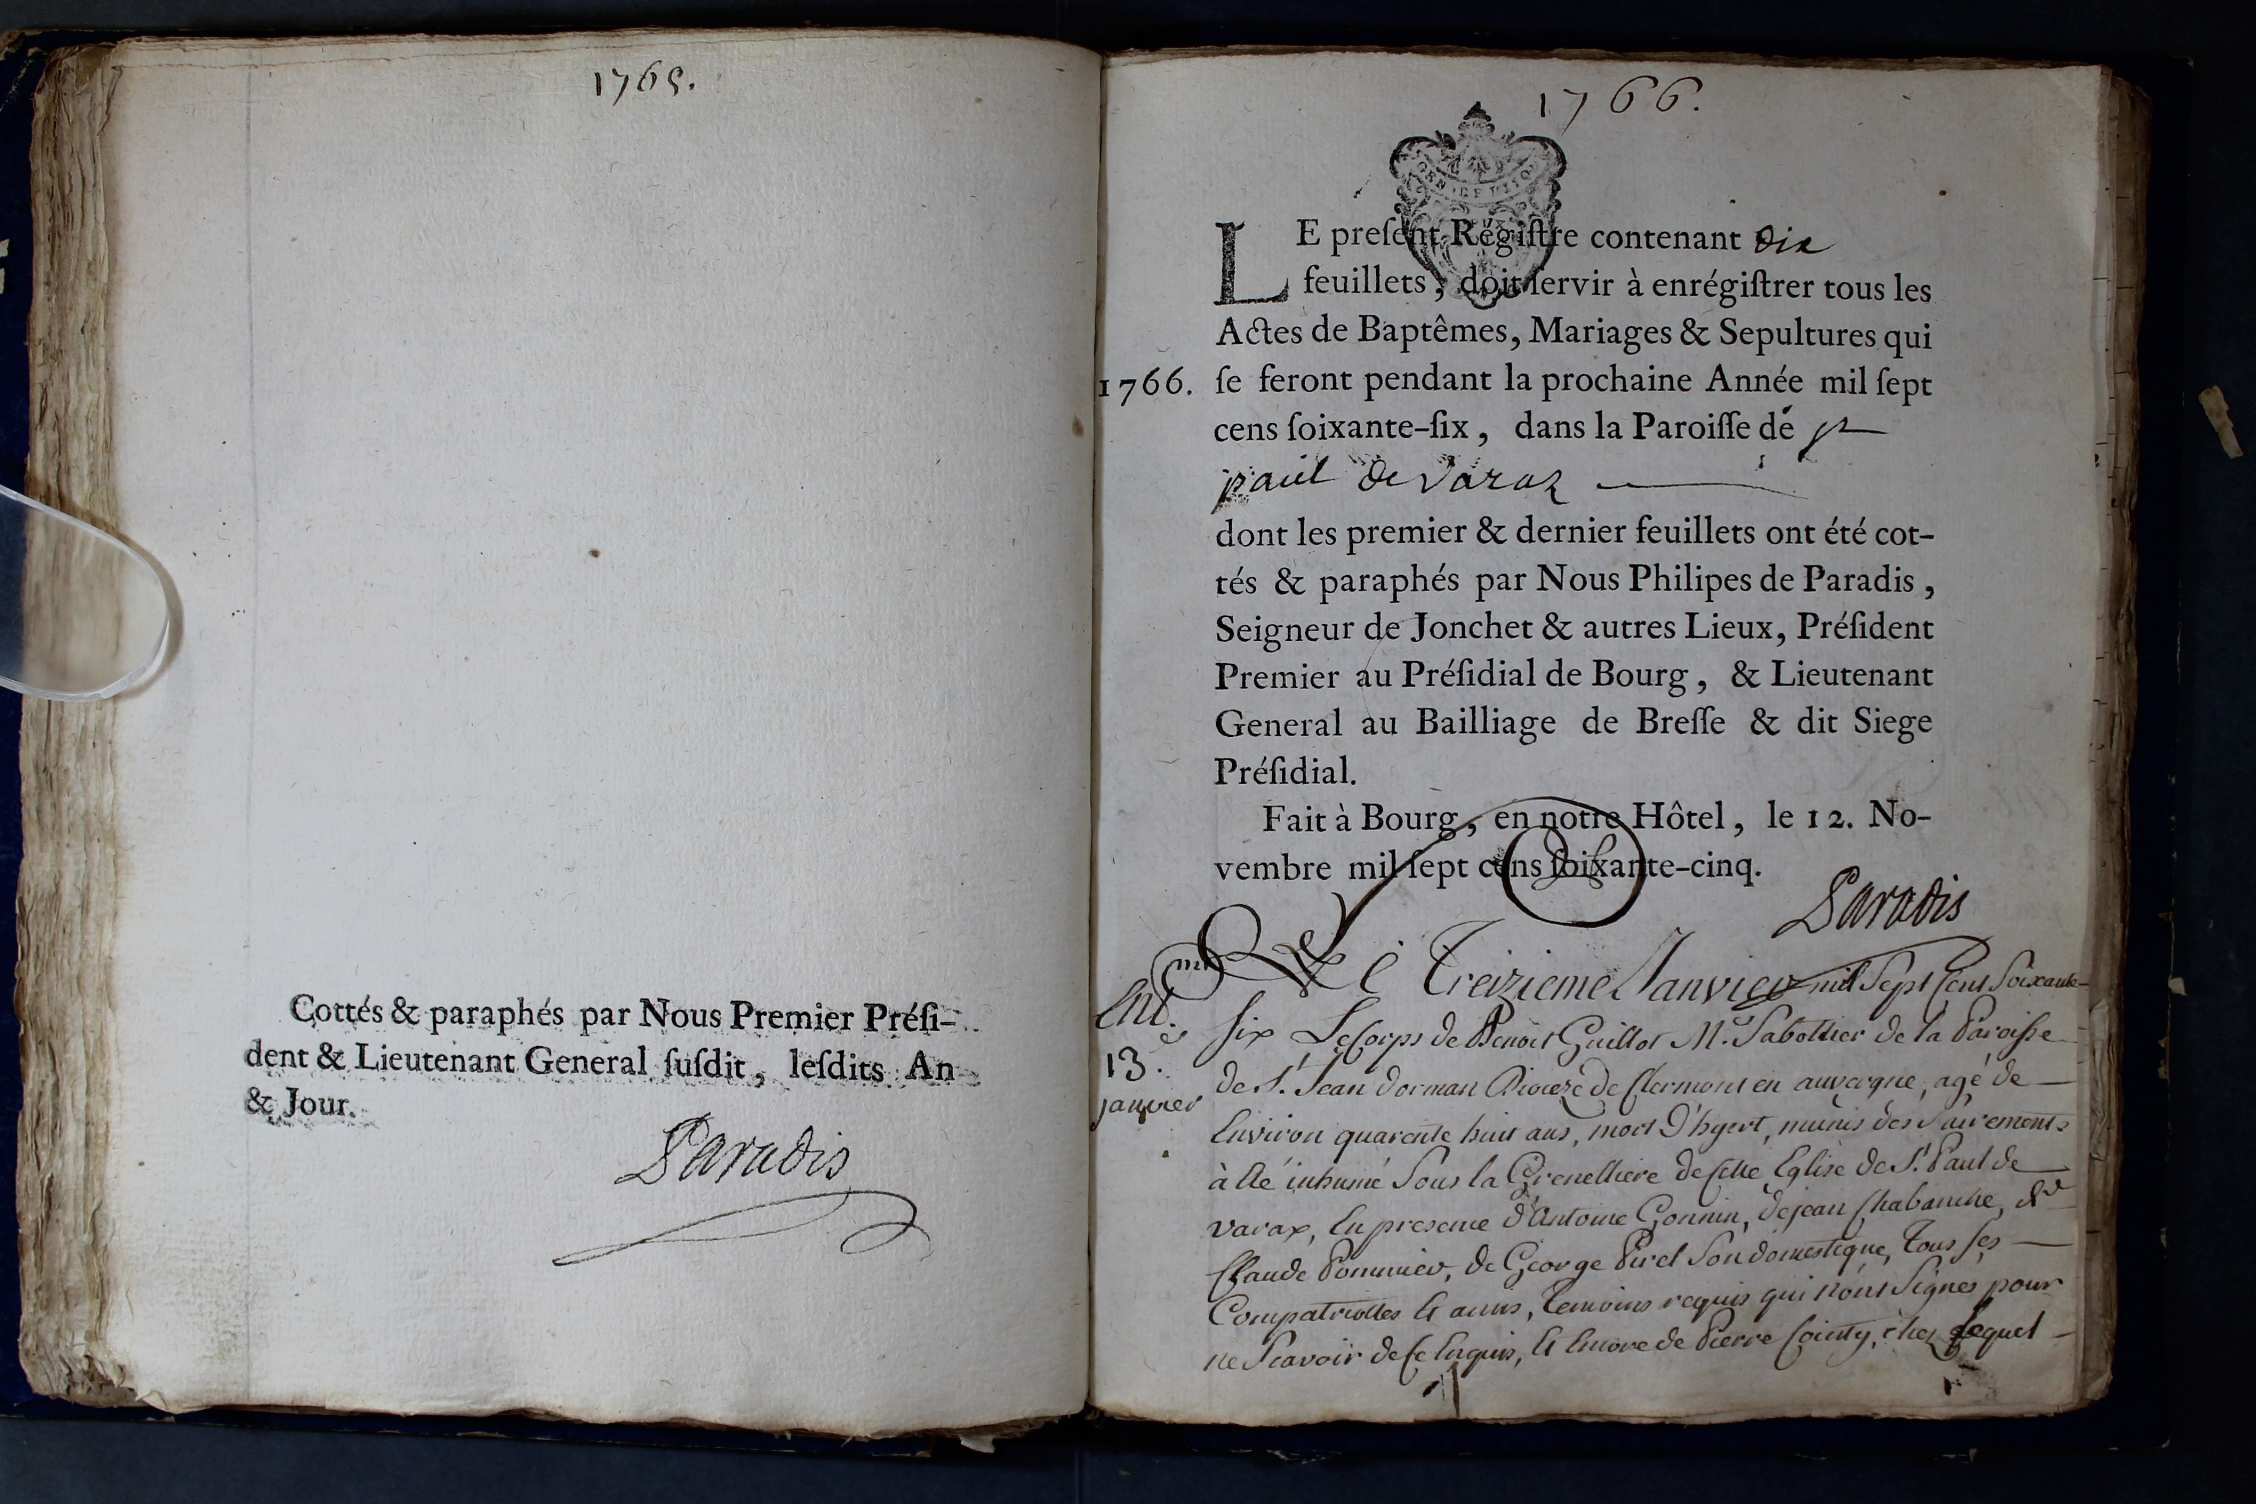 1765.
Cottés & paraphés par Nous Premier Préſi-
dent & Lieutenant General ſuſdit, leſdits An
& Jour.
Paradis
1766.
LE preſent Régiſtre contenant dix
feuillets, doit ſervir à enrégiſtrer tous les
Actes de Baptêmes, Mariages & Sepultures qui
1766. ſe feront pendant la prochaine Année mil ſept
cens ſoixante-ſix, dans la Paroiſſe de st
paul de Varax
dont les premier & dernier feuillets ont été cot-
tés & paraphés par Nous Philipes de Paradis,
Seigneur de Jonchet & autres Lieux, Préſident
Premier au Préſidial de Bourg, & Lieutenant
General au Bailliage de Breſſe & dit Siege
Préſidial.
Fait à Bourg, en notre Hôtel, le 12. No-
vembre mil ſept cens ſoixante-cinq.
Paradis
Ent.
13.
janvier
Le Treizieme Janvier mil Sept Cent Soixante
Six Le Corps de Benoit Guillot M.d Sabottier de la Paroisse
de S.t Jean dorman Dioceze de Clermont en auvergne, agé de
Environ quarente huit ans, mort D'hyert, munis des Sacrements
à été inhumé Sous la Grenettiere de Cette Eglise de S.t Paul de
varax, En presence d'Antoine Gonnin, de jean Chabanche, &
Claude Pommier, de George Pirel Son domestique, Tous ses
Compatriottes Et amis, Temoins requis qui nont Signes pour
ne Scavoir de Ce Enquis, Et Encore de Pierre Cointy, chez Lequel